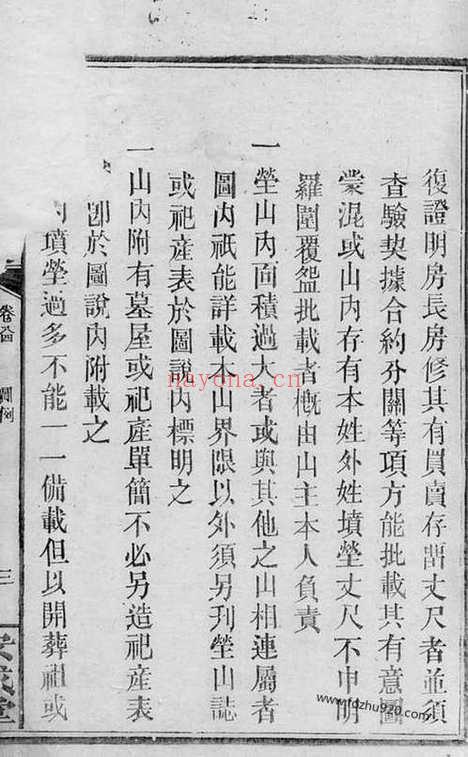 復證明房長房修其有買賣存留丈尺者並須
查驗契據合約分關等項方能批載其有意圖
蒙混或山內存有本姓外姓墳塋丈尺不申明
羅圍覆盌批載者概由山主本人負責
一塋山內面積過大者或與其他之山相連屬者
圖內祇能詳載本山界限以外須另刋塋山誌
或祀產表於圖說內標明之
一山內附有墓屋或祀產單簡不必另造祀產表
即於圖說內附載之
墳塋過多不能一一備載但以開葬祖或
卷 圖例
三
堂
nayona.cn
www.fdzhu920.com